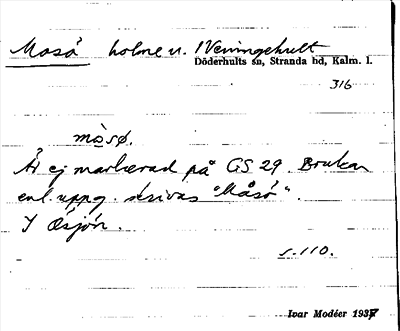 Mosö holme u. 1 Veningehult
Döderhults sn, Stranda hd, Kalm. l.
316
mòsø.
Är ej markerad på GS 29. Brukar
enl. uppg. skrivas "Måsö".
I Ösjön.
s. 110.
Ivar Modéer 1937